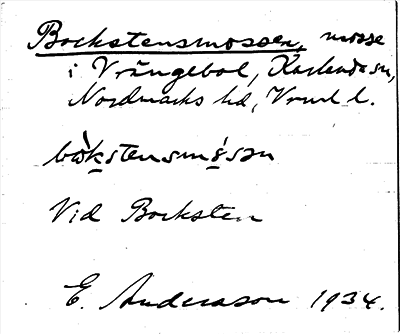 Bockstensmossen, mosse
i Vrångebol, Karlanda sn,
Nordmarks hd, Vrml l.
bòkstensmòsən
Vid Bocksten
E. Andersson 1934.